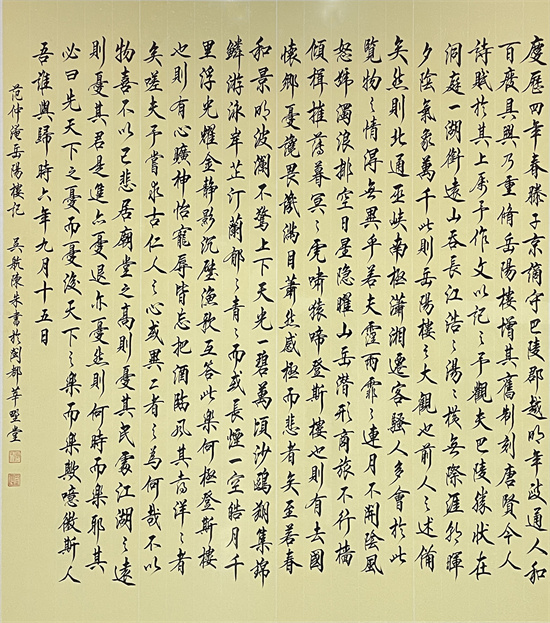 慶歷四年春滕子京謫守巴陵郡越明年政通人和
百廢具興乃重脩岳陽樓增其舊制刻唐賢今人
詩賦於其上屬予作文以記之予觀夫巴陵勝狀在
洞庭一湖銜遠山吞長江浩々湯々橫無際涯朝暉
夕陰氣象萬千此則岳陽樓之大觀也前人之述備
矣然則北通巫峽南極瀟湘遷客騷人多會於此
覽物之情得無異乎若夫霪雨霏々連月不開陰風
怒號濁浪排空日星隱曜山岳潛形商旅不行檣
傾楫摧薄暮冥々虎嘯猿啼登斯樓也則有去國
懷鄉憂讒畏譏滿目蕭然感極而悲者矣至若春
和景明波瀾不驚上下天光一碧萬頃沙鷗翔集錦
鱗游泳岸芷汀蘭郁々青々而或長煙一空皓月千
里浮光耀金靜影沉璧漁歌互答此樂何極登斯樓
也則有心曠神怡寵辱皆忘把酒臨風其喜洋々者
矣嗟夫予嘗求古仁人之心或異二者之為何哉不以
物喜不以己悲居廟堂之高則憂其民處江湖之遠
則憂其君是進亦憂退亦憂然則何時而樂耶其
必曰先天下之憂而憂後天下之樂而樂歟噫微斯人
吾誰與歸時六年九月十五日
范仲淹岳陽樓記 吳航陳朱書於閩都堂